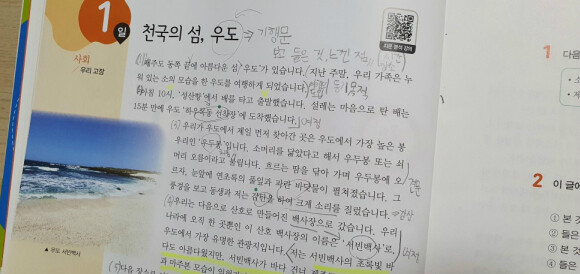 1일
사회
우리 고장
천국의 섬, 우도 → 기행문
보고 들은 것, 느낀 점
지문 분석 강의
(1) 제주도 동쪽 끝에 아름다운 섬 '우도'가 있습니다. 지난 주말, 우리 가족은 누
워 있는 소의 모습을 한 우도를 여행하게 되었습니다.
아침 10시, '성산항'에서 배를 타고 출발했습니다. 설레는 마음으로 탄 배는
15분 만에 우도 '하우목동 선착장'에 도착했습니다. 여정
(3) 우리가 우도에서 제일 먼저 찾아간 곳은 우도에서 가장 높은 봉
우리인 '우두봉'입니다. 소머리를 닮았다고 해서 우두봉 또는 쇠
머리 오름이라고 불립니다. 흐르는 땀을 닦아 가며 우두봉에 오
르자, 눈앞에 연초록의 풀잎과 파란 바닷물이 펼쳐졌습니다. 그
풍경을 보고 동생과 저는 감탄을 하며 크게 소리를 질렀습니다.
(4) 우리는 다음으로 산호로 만들어진 백사장으로 갔습니다. 우리
나라에 오직 한 곳뿐인 이 산호 백사장의 이름은 '서빈백사'로,
우도에서 가장 유명한 관광지입니다. 저는 서빈백사의 초록빛 바
다도 아름다웠지만, 서빈백사가 바다 건너
(5) 다음
와 마주본 모습이
▲ 우도 서빈백사
1 다음
2 이 글에
① 본 것
② 들은
③ 본
④ 들은